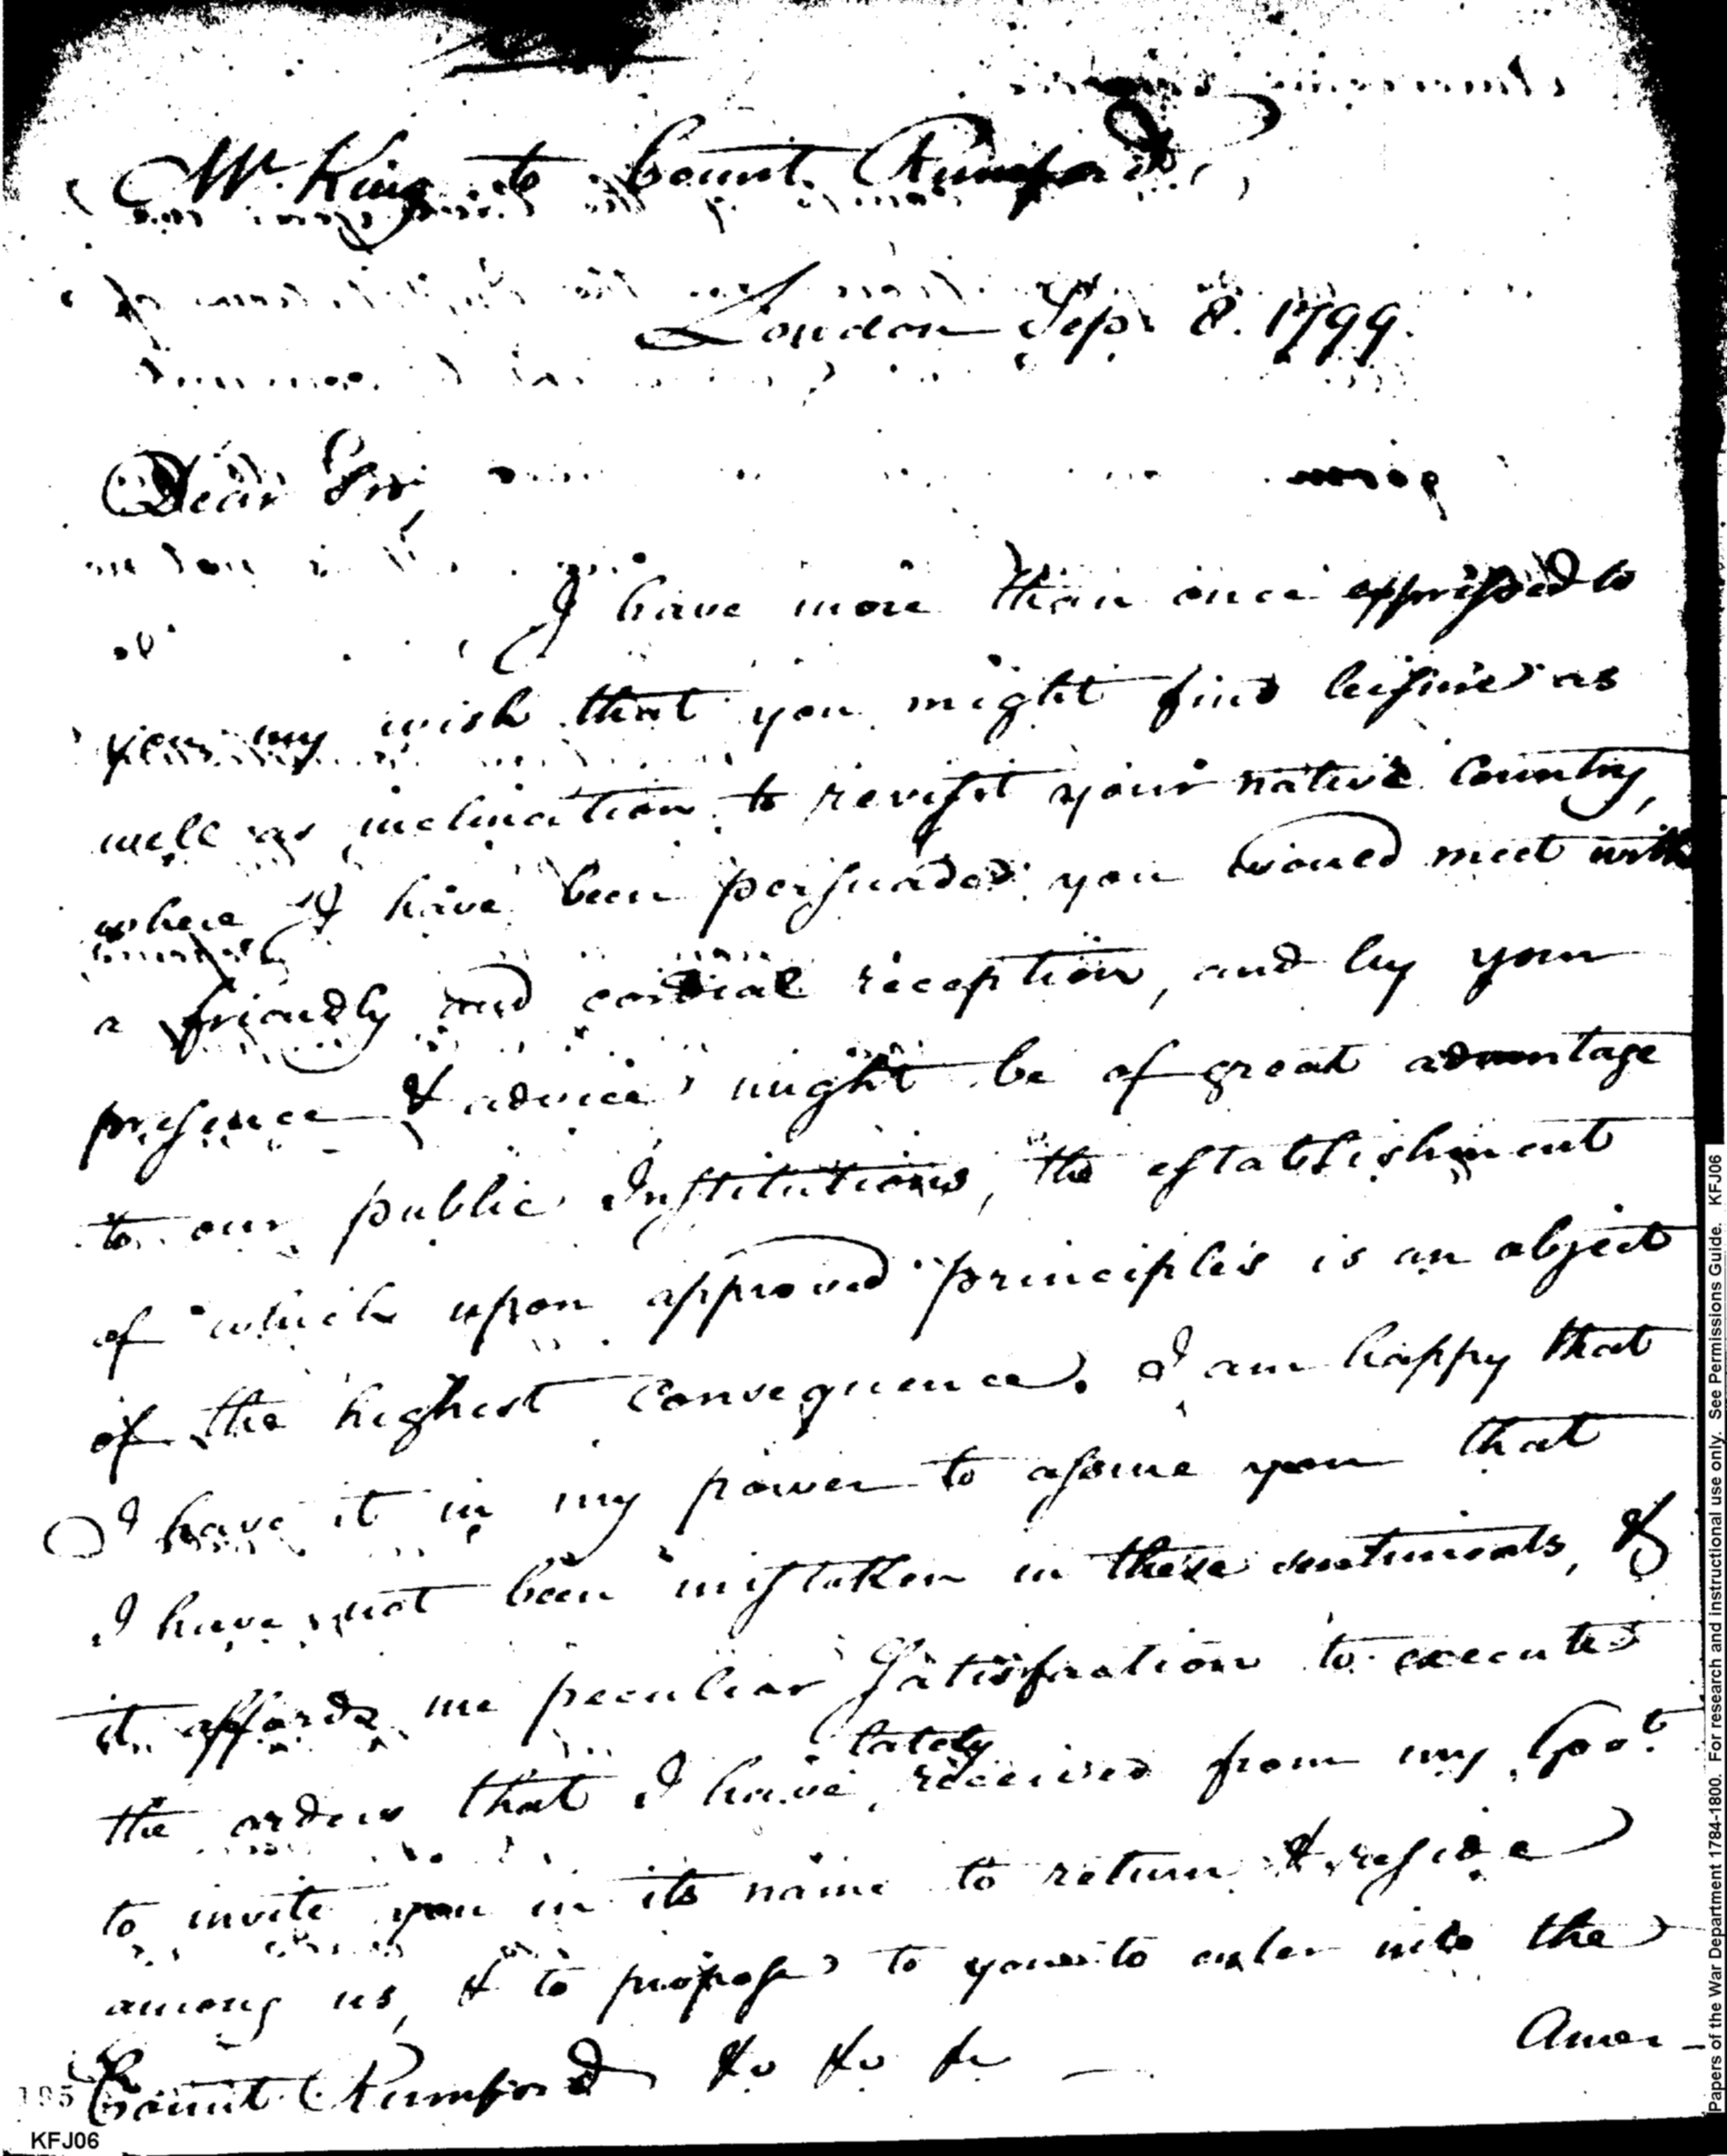 Mr. King to Count Rumford,
London Sep. 8. 1799.
Dear Sir,
I have more than once expressed to
you my wish that you might find leisure as
well as inclination to revisit your native Country,
where I have been persuaded you would meet with
a friendly and cordial reception, and by your
presence & advice might be of great advantage
to our public Institutions, the establishment
of which upon approved principles is an object
of the highest consequence. I am happy that
I have it in my power to assure you that
I have not been mistaken in these sentiments, &
it affords me peculiar satisfaction to execute
the orders that I have lately received from my Govt.
to invite you in its name to return & reside
among us, & to propose to you to enter into the
Amer-
Count Rumford &c &c &c
195
KFJ06
Papers of the War Department 1784-1800. For research and instructional use only. See Permissions Guide. KFJ06